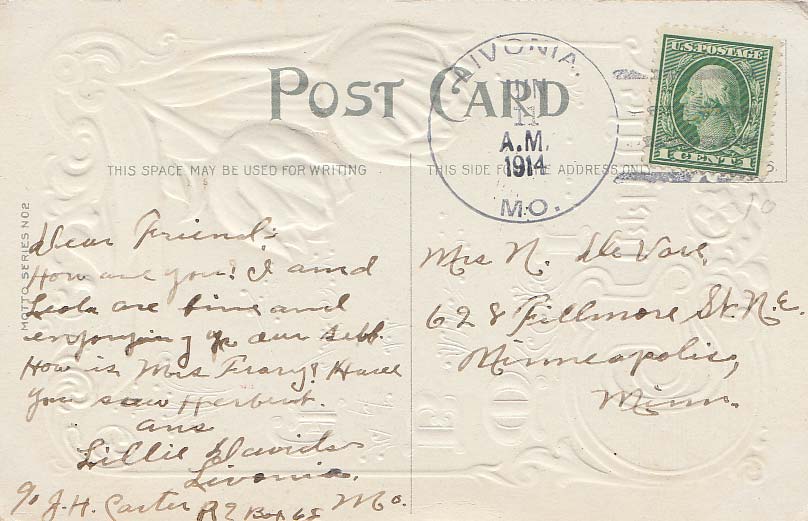 POST CARD
THIS SPACE MAY BE USED FOR WRITING
THIS SIDE FOR THE ADDRESS ONLY
LIVONIA,
JUN
11
A.M.
1914
MO.
U.S. POSTAGE
1 CENT 1
MOTTO SERIES NO2
Dear Friend:
How are you? I and
Leola are fine and
enjoying our self.
How is Mrs Have
you saw Herbert.
ans
Lillie Davids
Livonia.
Mo.
℅ J.H. Carter R2 Box 68
Mrs N. DeVore,
628 Fillmore St. N.E.
Minneapolis,
Minn.